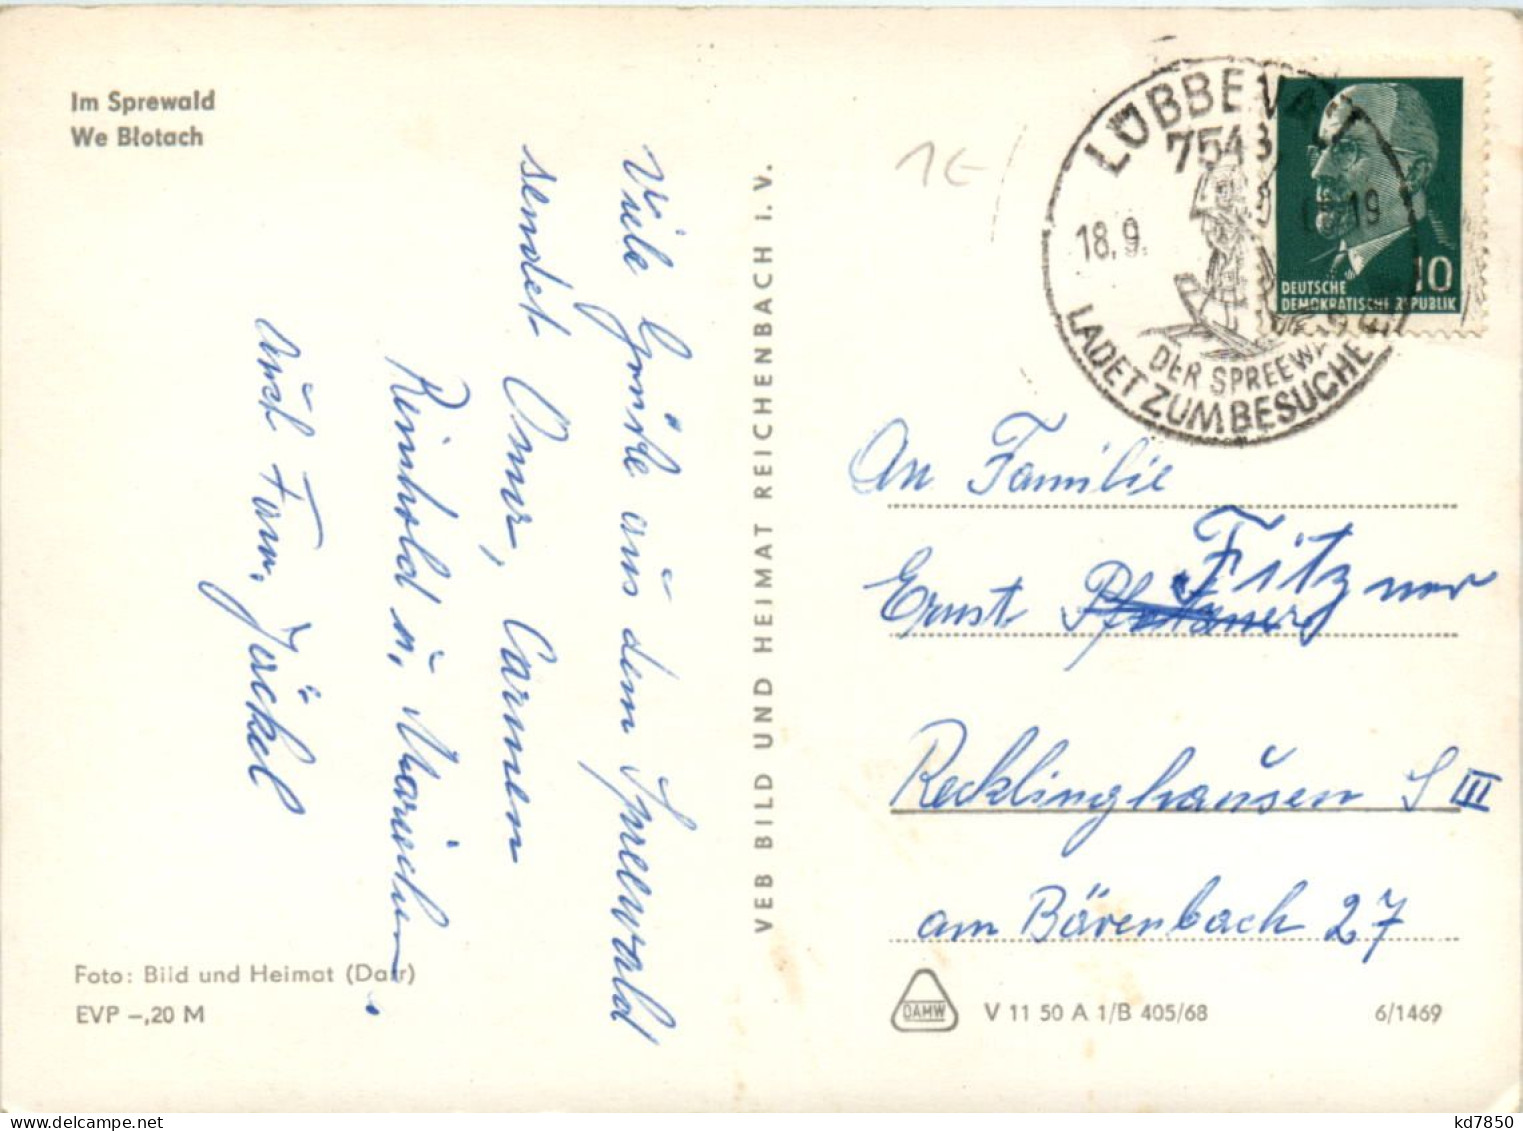 Im Sprewald
We Blotach
Viele Grüße aus dem Spreewald
sendet Omir, Carmen
Reinhold u. Mariechen
auch Fam. Jäckel
Foto: Bild und Heimat (Darr)
EVP –,20 M
VEB BILD UND HEIMAT REICHENBACH I. V.
1€
LÜBBENAU
7543
18.9. 19
DER SPREEWALD
LADET ZUM BESUCHE
DEUTSCHE
DEMOKRATISCHE REPUBLIK
10
An Familie
Ernst Fitzner
Recklinghausen S III
am Bärenbach 27
DAMW
V 11 50 A 1/B 405/68
6/1469
kd7850